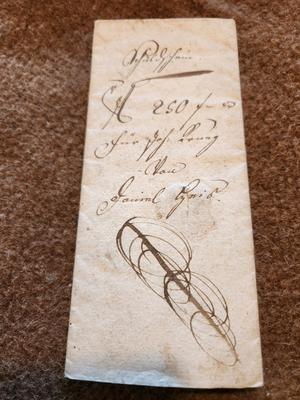 Schuldschein.
250 f
Für Joh.
Von
Daniel